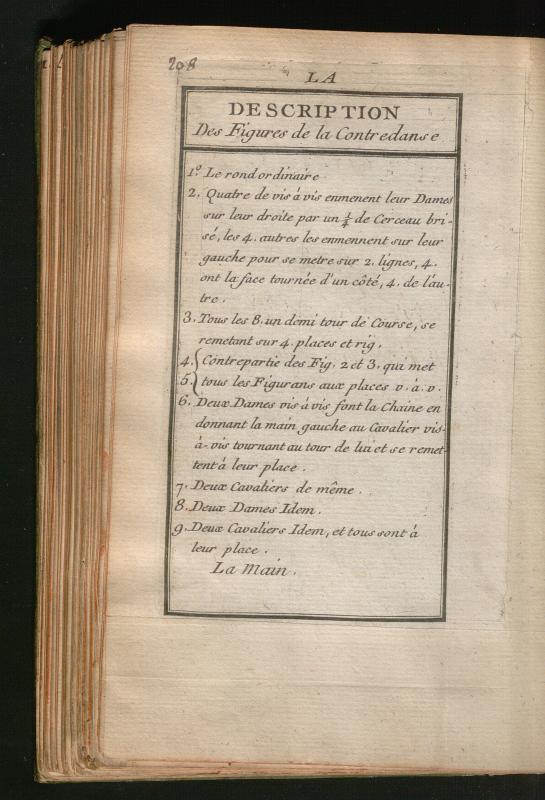 208
LA
DESCRIPTION
Des Figures de la Contredanse
1.º Le rond ordinaire
2. Quatre de vis á vis enmenent leur Dames
sur leur droite par un ¼ de Cerceau bri-
sé, les 4. autres les enmennent sur leur
gauche pour se metre sur 2. lignes, 4.
ont la face tournée d'un côté, 4. de l'au-
tre.
3. Tous les 8. un demi tour de Course, se
remetant sur 4. places et rig.
4. Contrepartie des Fig. 2 et 3. qui met
5. tous les Figurans aux places v. à. v.
6. Deux Dames vis à vis font la Chaine en
donnant la main gauche au Cavalier vis-
à-vis tournant au tour de lui et se remet-
tent à leur place.
7. Deux Cavaliers de même.
8. Deux Dames Idem.
9. Deux Cavaliers Idem, et tous sont á
leur place.
La Main.